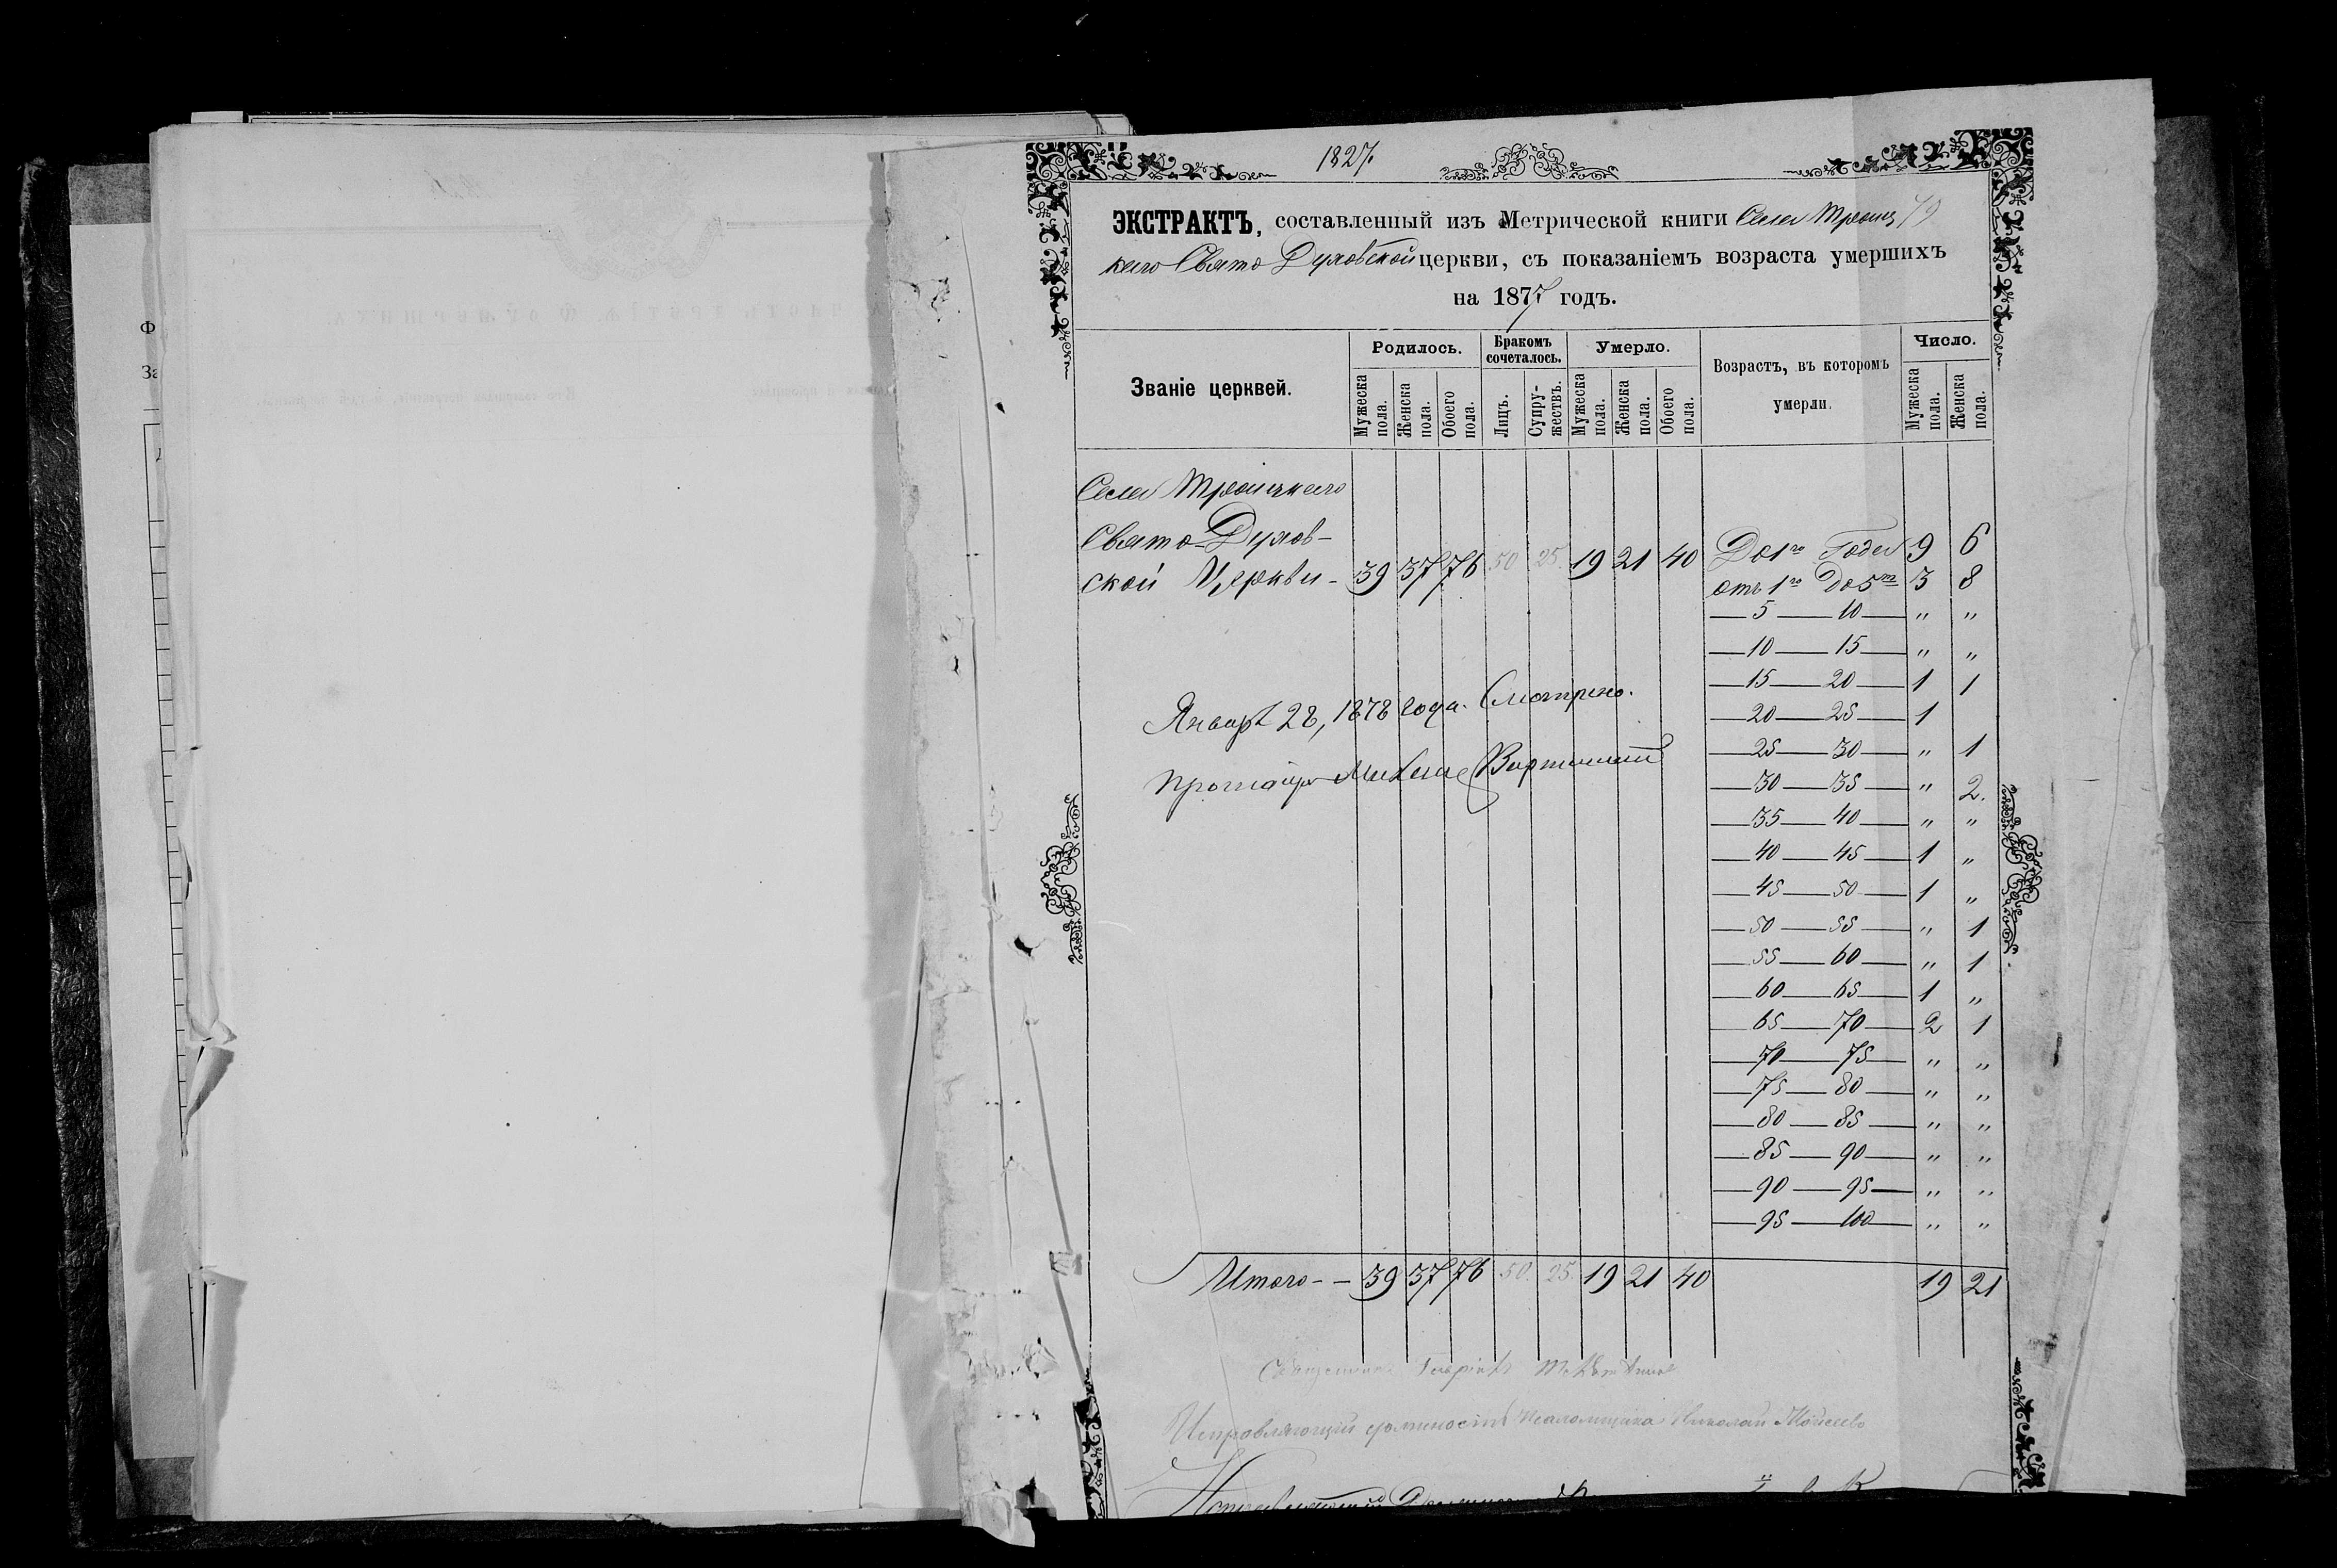 1827.
ЭКСТРАКТЪ, составленный изъ Метрической книги Села Троиц 79
каго Свято Духовской церкви, съ показаніемъ возраста умершихъ
на 1877 годъ.
Званіе церквей.
Родилось.
Бракомъ сочеталось.
Умерло.
Возрастъ, въ которомъ умерли.
Число.
Мужеска пола.
Женска пола.
Обоего пола.
Лицъ.
Супружествъ.
Мужеска пола.
Женска пола.
Обоего пола.
Мужеска пола.
Женска пола.
Села Троицкаго
Свято-Духов-
ской Церкви - 39 37 76 50 25. 19 21 40
До 1го Года 9 6
отъ 1го До 5ти 3 8
5 — 10 „ „
10 — 15 „ „
15 — 20 1 1
20 — 25 1
25 — 30 „ 1
30 — 35 „ 2.
35 — 40 „ „
40 — 45 1 „
45 — 50 1 „
50 — 55 „ 1
55 — 60 „ 1
60 — 65 1 „
65 — 70 2 1
70 — 75 „ „
75 — 80 „ „
80 — 85 „ „
85 — 90 „ „
90 — 95 „ „
95 — 100 „ „
Январь 28, 1878 года. Смотрено.
Итого - - 39 37 76 50. 25. 19 21 40 19 21
Исправляющій должность Псаломщика Николай